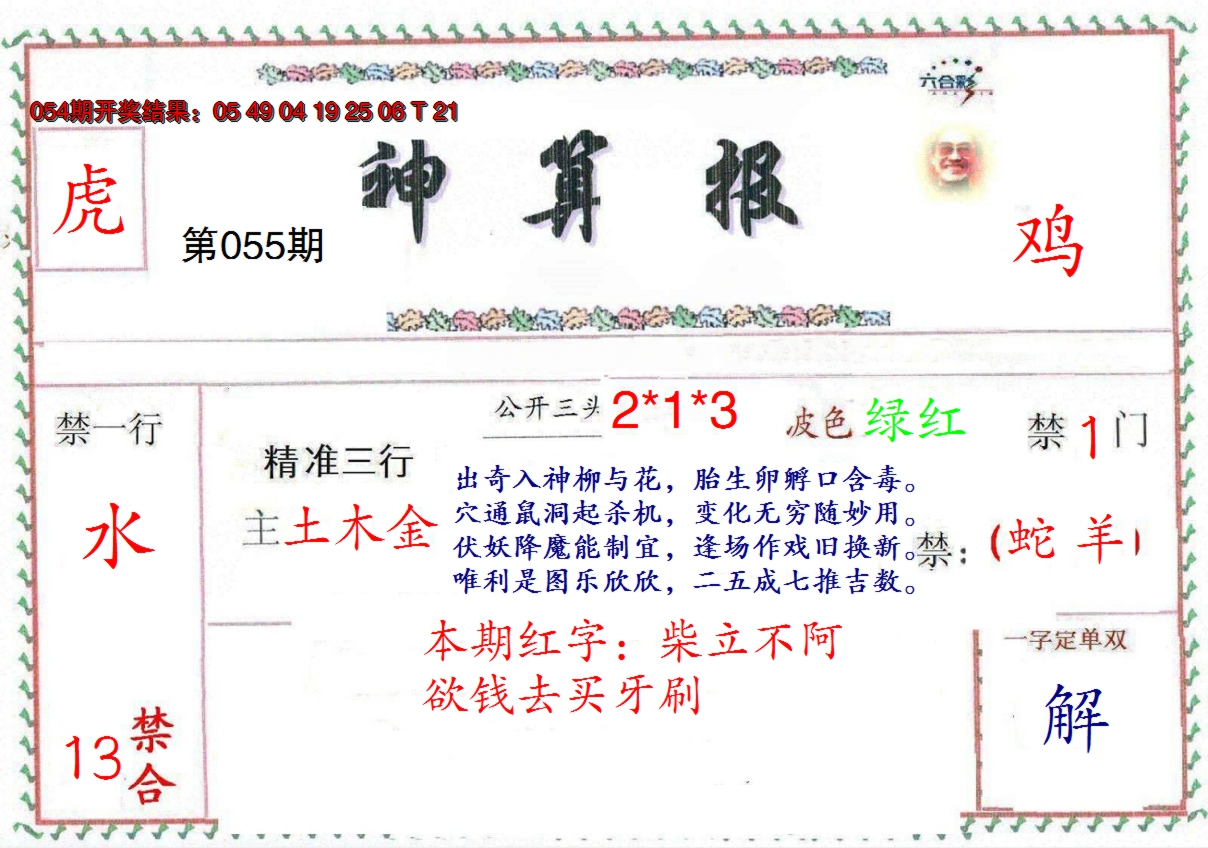 六合彩
054期开奖结果：05 49 04 19 25 06 T 21
神算报
虎
第055期
鸡
公开三头 2*1*3
波色 绿红
禁一行
禁1门
精准三行
主土木金
水
出奇入神柳与花，胎生卵孵口含毒。
穴通鼠洞起杀机，变化无穷随妙用。
伏妖降魔能制宜，逢场作戏旧换新。
唯利是图乐欣欣，二五成七推吉数。
禁：(蛇 羊)
本期红字：柴立不阿
欲钱去买牙刷
一字定单双
解
13禁合